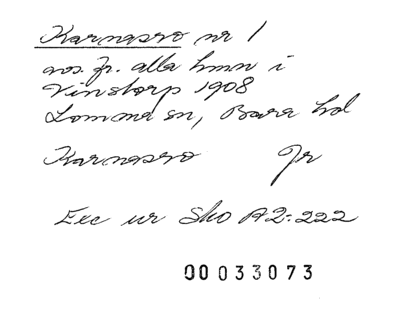 Karnasro nr 1
avs. fr. alla hmn i
Vinstorp 1908
Lomma sn, Bara hd
Karnasro Jr
Exc ur Sko A2:222
00033073